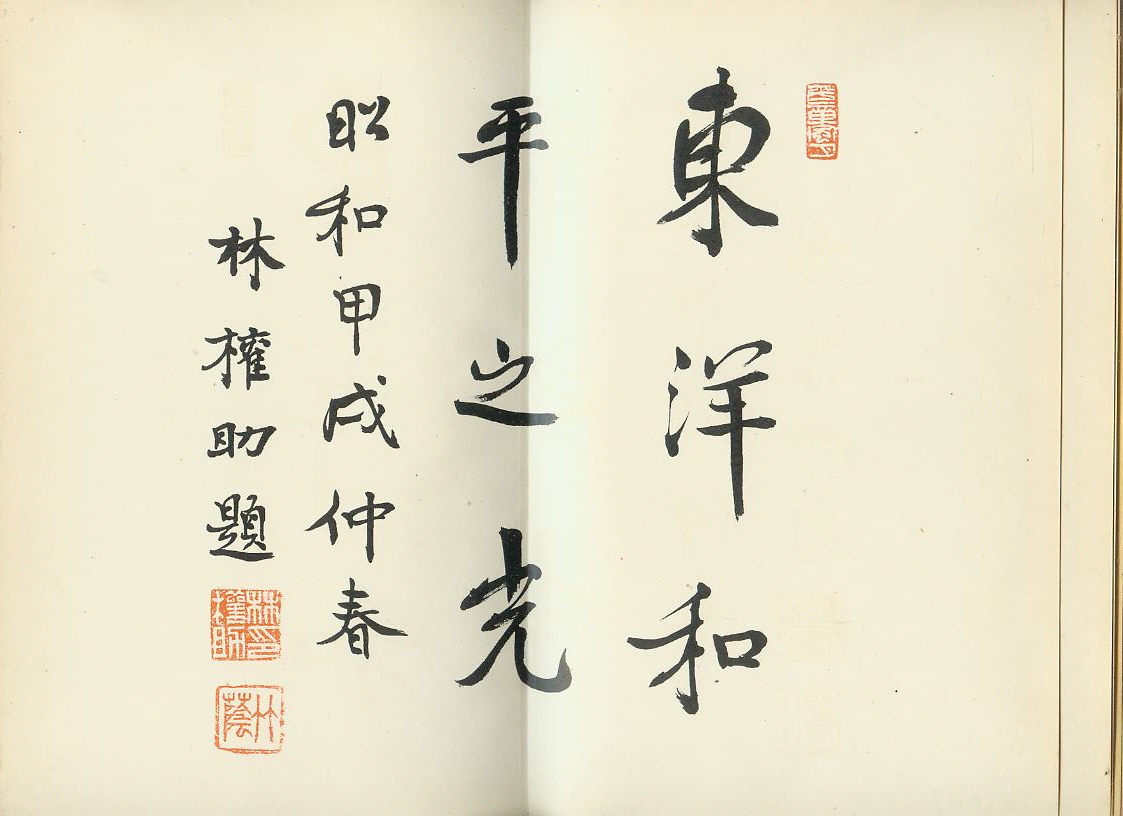 東洋和
平之光
昭和甲戌仲春
林権助題
林印權助
竹蔭